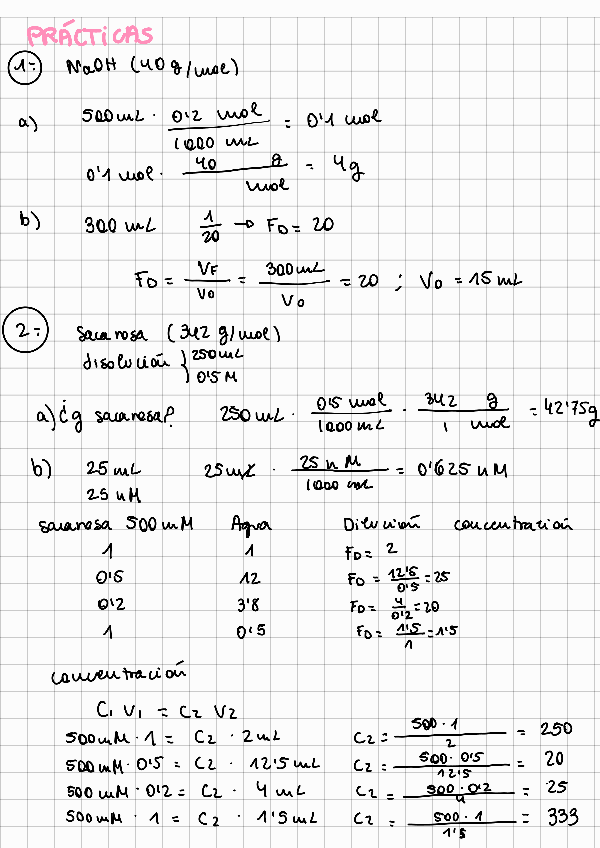 PRÁCTICAS
1- NaOH (40 g/mol)
a) 500 mL · 0'2 mol / 1000 mL = 0'1 mol
0'1 mol · 40 g / mol = 4g
b) 300 mL 1/20 → FD = 20
FD = VF / V0 = 300 mL / V0 = 20 ; V0 = 15 mL
2- sacarosa (342 g/mol)
disolución { 250 mL
0'5 M
a) ¿g sacarosa? 250 mL · 0'5 mol / 1000 mL · 342 g / 1 mol = 42'75g
b) 25 mL 25 mL · 25 nM / 1000 mL = 0'625 nM
25 nM
sacarosa 500 mM Agua Dilución concentración
1 1 FD = 2
0'5 12 FD = 12'5 / 0'5 = 25
0'2 3'8 FD = 4 / 0'2 = 20
1 0'5 FD = 1'5 / 1 = 1'5
concentración
C1 V1 = C2 V2
500 mM · 1 = C2 · 2 mL C2 = 500 · 1 / 2 = 250
500 mM · 0'5 = C2 · 12'5 mL C2 = 500 · 0'5 / 12'5 = 20
500 mM · 0'2 = C2 · 4 mL C2 = 500 · 0'2 / 4 = 25
500 mM · 1 = C2 · 1'5 mL C2 = 500 · 1 / 1'5 = 333